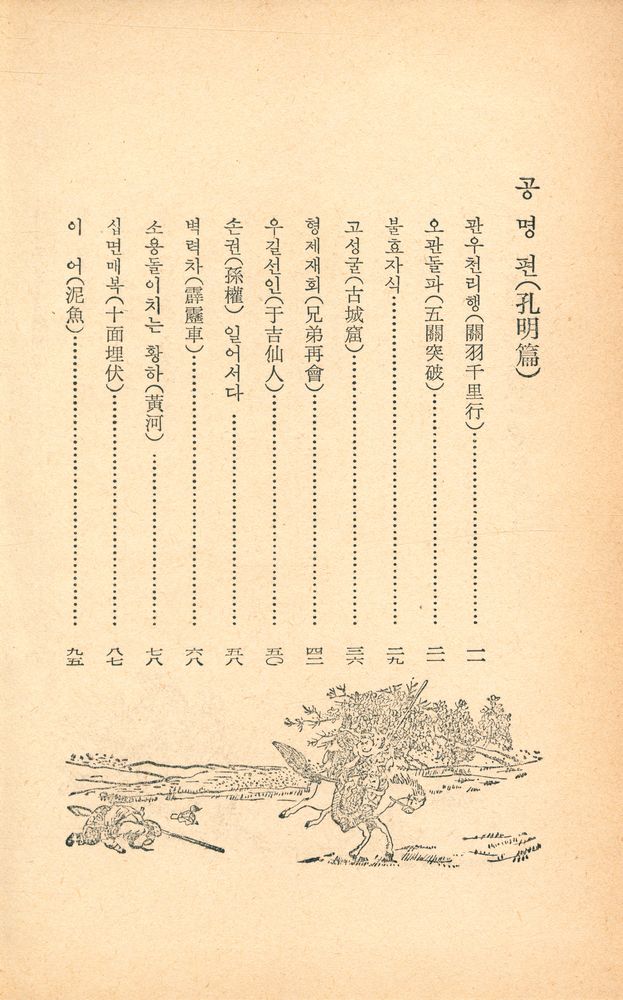 공명편(孔明篇)
관우천리행(關羽千里行)……………………一一
오관돌파(五關突破)……………………二一
불효자식……………………二九
고성굴(古城窟)……………………三六
형제재회(兄弟再會)……………………四二
우길선인(于吉仙人)……………………五〇
손권(孫權) 일어서다……………………五八
벽력차(霹靂車)……………………六八
소용돌이치는 황하(黃河)……………………七八
십면매복(十面埋伏)……………………八七
이 어(泥魚)……………………九五